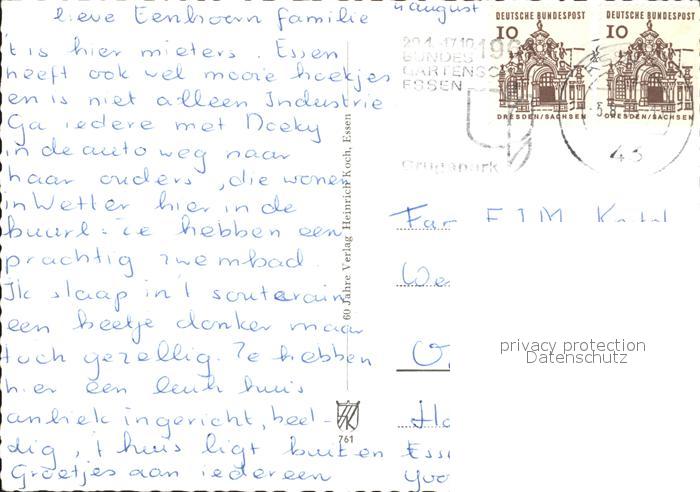 lieve Eenhoorn familie
4 august
't is hier mieters. Essen
heeft ook wel mooie hoekjes
en is niet alleen Industrie
Ga iedere met
in de auto weg naar
haar ouders, die wonen
in Wetter hier in de
buurt. Ze hebben een
prachtig zwembad.
Ik slaap in 't souterain
een beetje donker maar
toch gezellig. Ze hebben
hier een leuk huis
antiek ingericht, beel-
dig, 't huis ligt buiten
Groetjes aan iedereen
60 Jahre Verlag Heinrich Koch, Essen
761
DEUTSCHE BUNDESPOST
10
DRESDEN/SACHSEN
DEUTSCHE BUNDESPOST
10
DRESDEN/SACHSEN
BUNDES
GARTENSC
ESSEN
Grugapark
43
Fam
We
Esse
privacy protection
Datenschutz